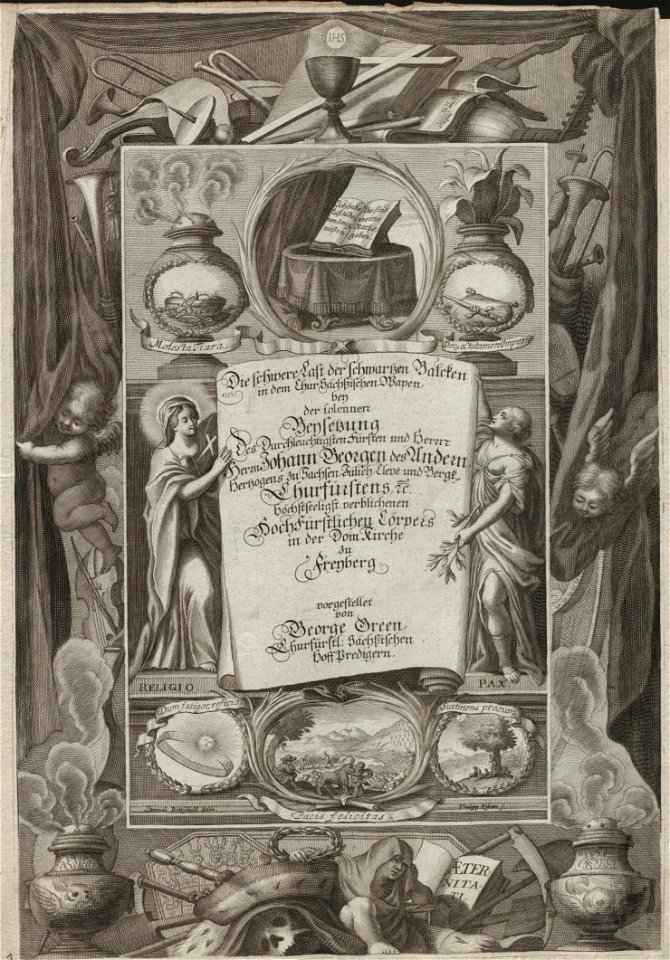 IHS
Ich habe Lust
Molesta Tiara
Die schwere Last der schwartzen Balcken
in dem Chur Sächsischen Wapen,
bey
der solennen
Beysetzung
Des Durchleuchtigsten Fürsten und Herrn
Herrn Johann Georgen des Andern
Hertzogens zu Sachsen Jülich Cleve und Bergk,
Churfürstens, ꝛc.
höchstseeligst verblichenen
HochFürstlichen Cörpers
in der Dom Kirche
zu
Freyberg
vorgestellet
von
George Green,
Churfürstl: Sächsischen
Hoff Predigern.
RELIGIO
PAX
Dum fatigor, reficio
Sustinens
Pacis felicitas
Samuel Bottschild delin.
Philipp Kilian f.
ÆTER
NITA
TI.